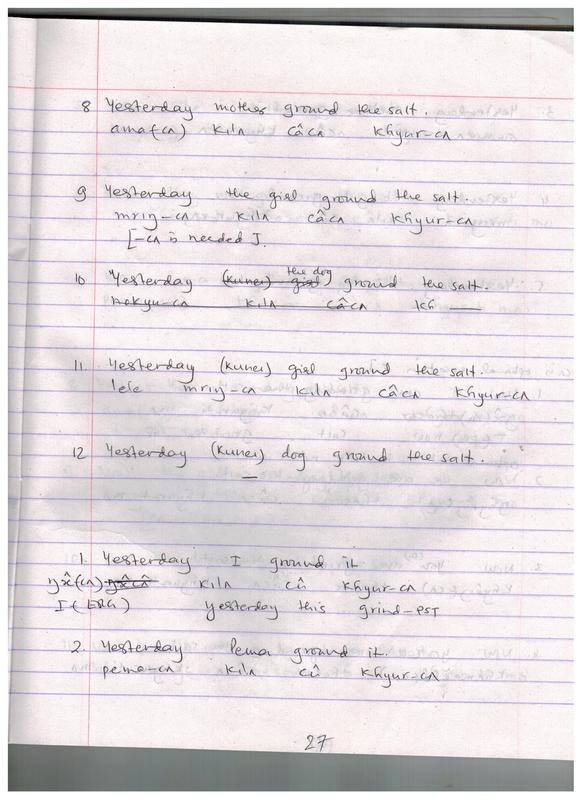 8 Yesterday mother ground the salt.
ama(cʌ) kilʌ câcʌ khyur-cʌ
9 Yesterday the girl ground the salt.
mriŋ-cʌ kilʌ câcʌ khyur-cʌ
[-cʌ is needed].
the dog
10 Yesterday (kunei) girl ground the salt.
nokyu-cʌ kilʌ câcʌ kh
11. Yesterday (kunei) girl ground the salt.
lele mriŋ-cʌ kilʌ câcʌ khyur-cʌ
12 Yesterday (kunei) dog ground the salt.
—
1. Yesterday I ground it
kilʌ cû khyur-cʌ
I (ERG) yesterday this grind-PST
2. Yesterday Pema ground it.
pema-cʌ kilʌ cû khyur-cʌ
27